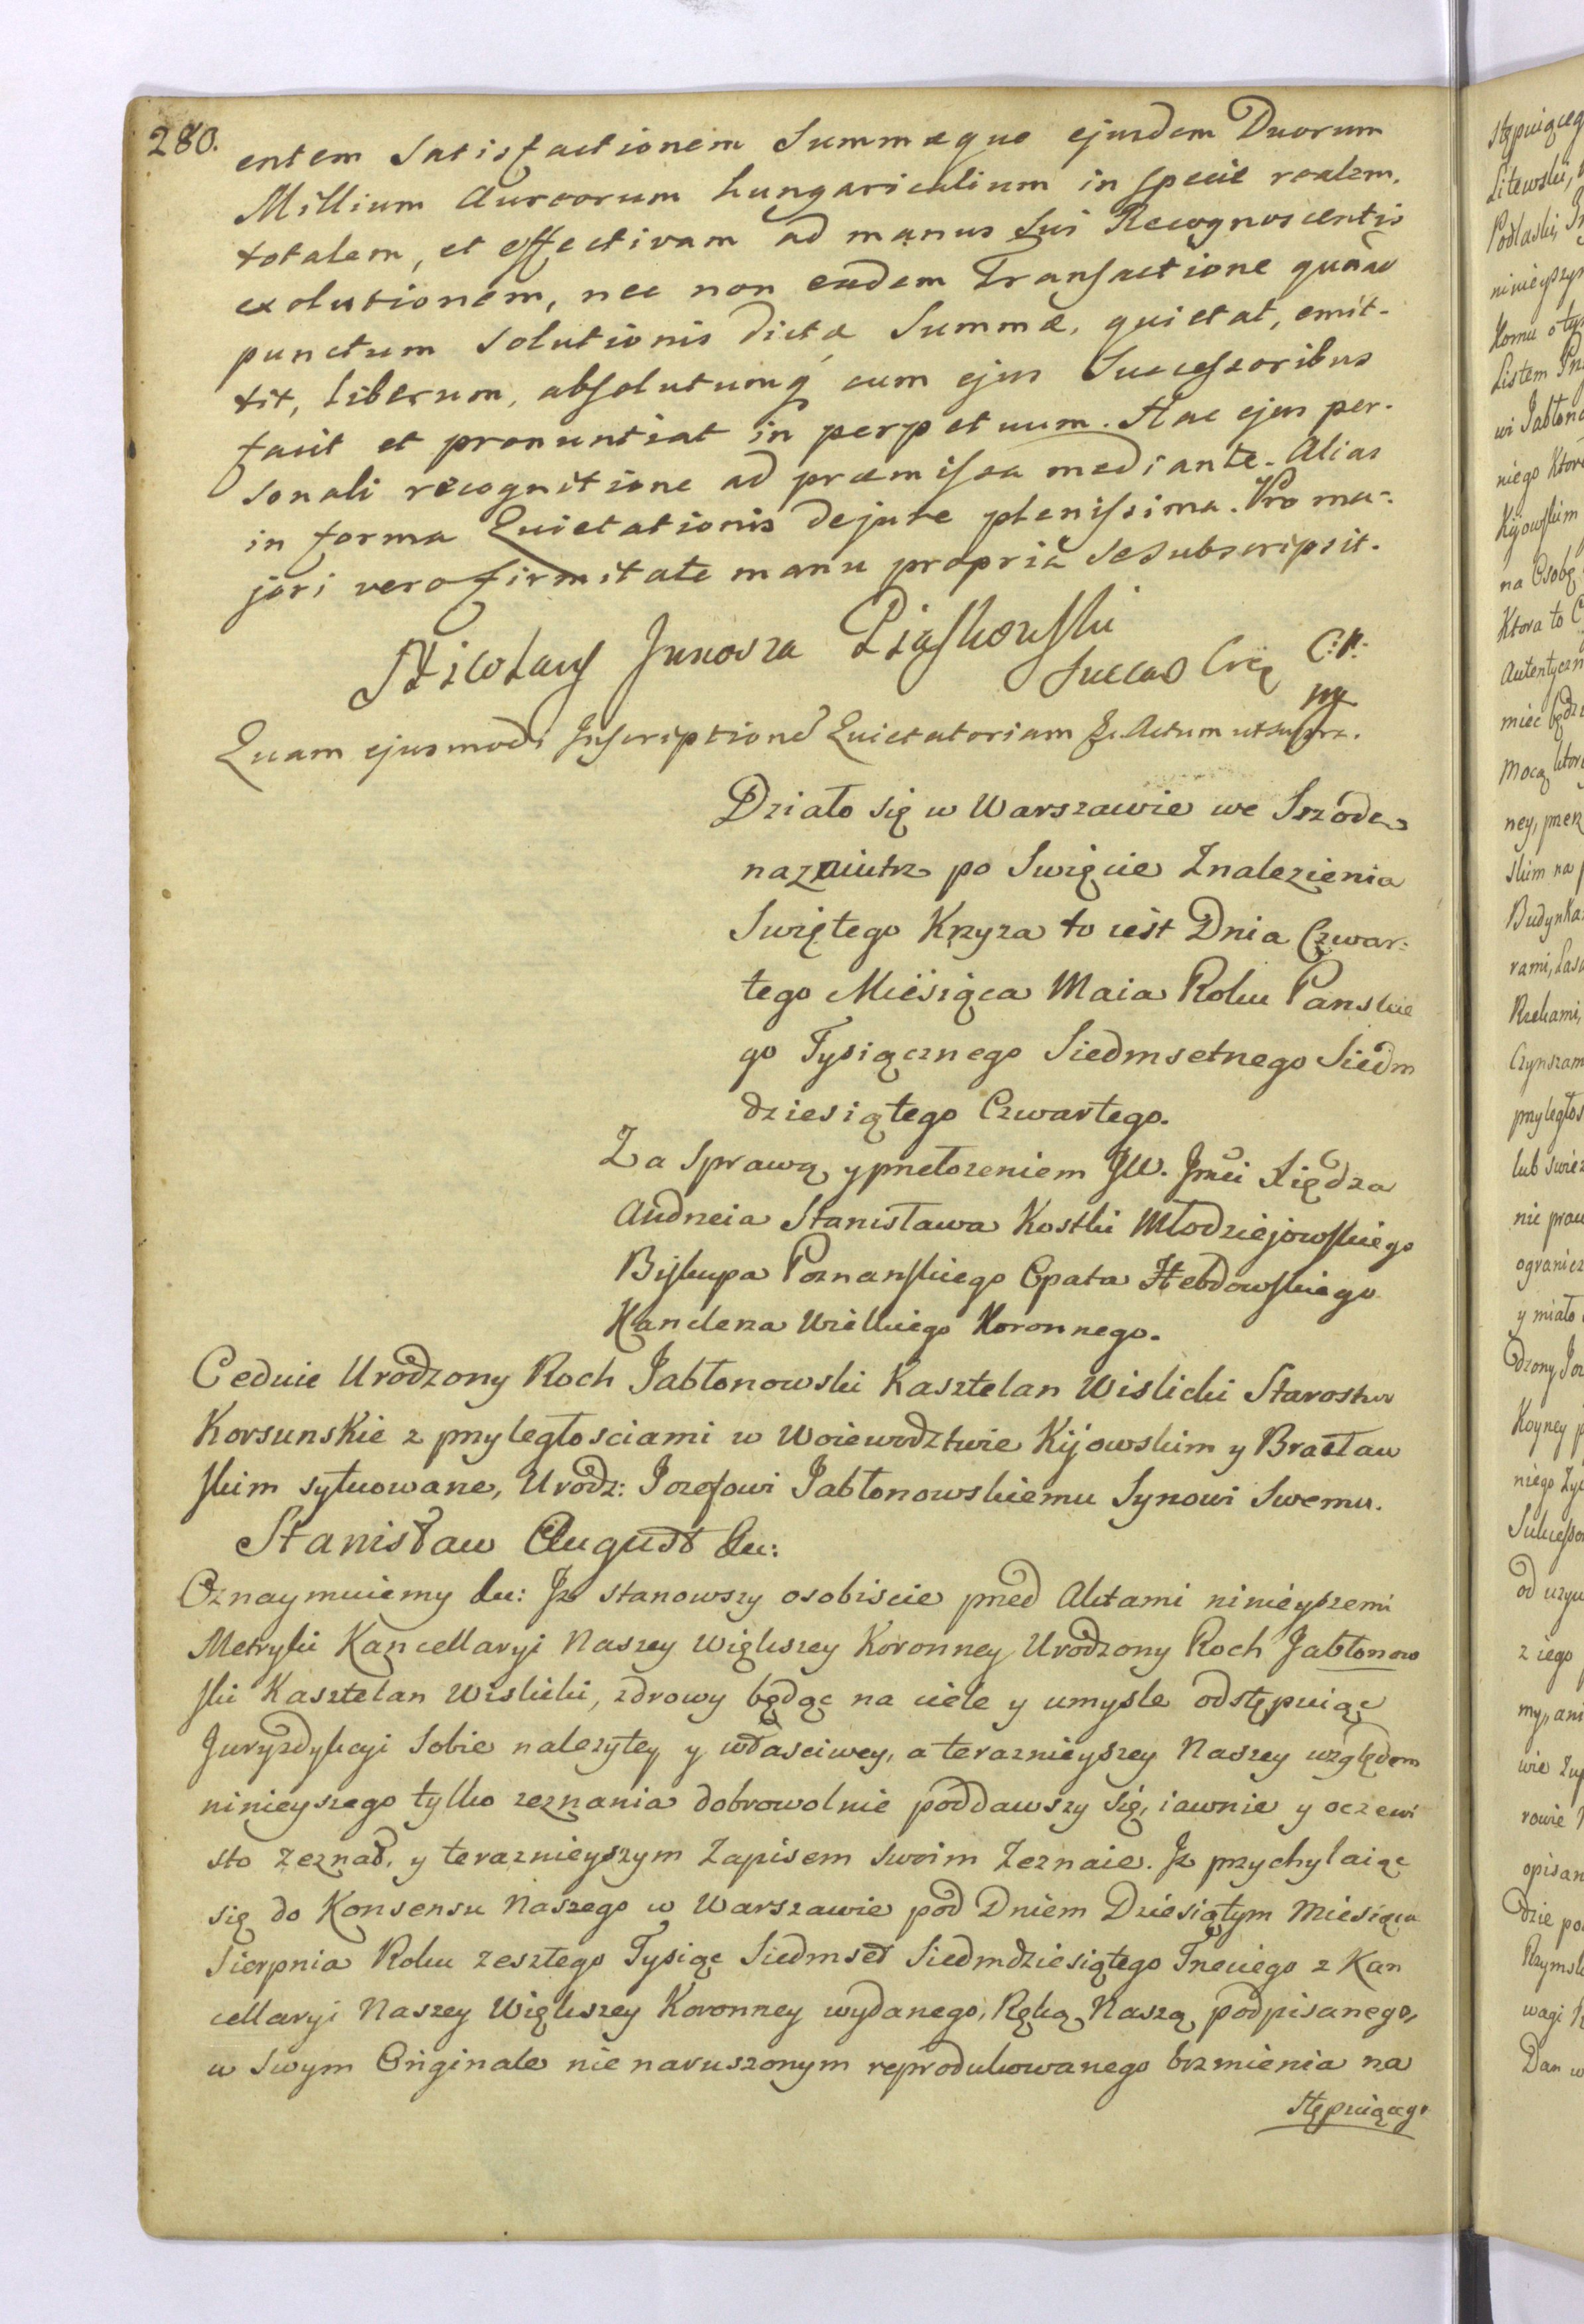 280.
entem Satisfactionem Summæque ejusdem Duorum
Millium Aureorum hungaricalium in specie realem,
totalem, et effectivam ad manus Sui Recognoscentis
exolutionem, nec non eadem Transactione quoad
punctum Solutionis dictæ Summæ, quietat, emit-
tit, liberum, absolutumq cum ejus Successoribus
facit et pronuntiat in perpetuum. Hac ejus per-
sonali recognitione ad præmissa mediante. Alias
in forma Quietationis dejure plenissima. Pro ma-
jori vero firmitate manu propria se subscripsit.
Nicolaus Junosza Piaskowski
Succ
C: K:
Quam ejusmodi Inscriptione Quietatoriam &. Actum ut supra.
Działo się w Warszawie we Srzodę
nazaiutrz po Swięcie Znalezienia
Swiętego Krzyza to iest Dnia Czwar-
tego Miesiąca Maia Roku Panskie
go Tysiącznego Siedmsetnego Siedm
dziesiątego Czwartego.
Za Sprawą y przełozeniem JW. Jmci Xiędza
Andrzeia Stanisława Kostki Młodziejowskiego
Biskupa Poznanskiego Opata Hebdowskiego
Kanclerza Wielkiego Koronnego.
Ceduie Urodzony Roch Jabłonowski Kasztelan Wislicki Starostwo
Korsunskie z przyległosciami w Woiewodztwie Kijowskim y Bracław
skim sytuowane, Urodz: Jozefowi Jabłonowskiemu Synowi Swemu.
Stanisław August &c:
Oznaymuiemy &c: Iz stanowszy osobiscie przed Aktami ninieyszemi
Metryki Kancellaryi Naszey Większey Koronney Urodzony Roch Jabłonow
ski Kasztelan Wislicki, zdrowy będąc na ciele y umysle odstępuiąc
Juryzdykcyi Sobie nalezytey y własciwey, a teraznieyszey Naszey względem
ninieyszego tylko zeznania dobrowolnie poddawszy się, iawnie y oczewi
sto zeznał, y teraznieyszym Zapisem swoim Zeznaie. Iz przychylaiąc
się do Konsensu Naszego w Warszawie pod Dniem Dziesiątym Miesiąca
Sierpnia Roku zeszłego Tysiąc Siedmset Siedmdziesiątego Trzeciego z Kan
cellaryi Naszey Większey Koronney wydanego, Ręką Naszą podpisanego,
w Swym Originale nienaruszonym reprodukowanego brzmienia na
stępuiącego